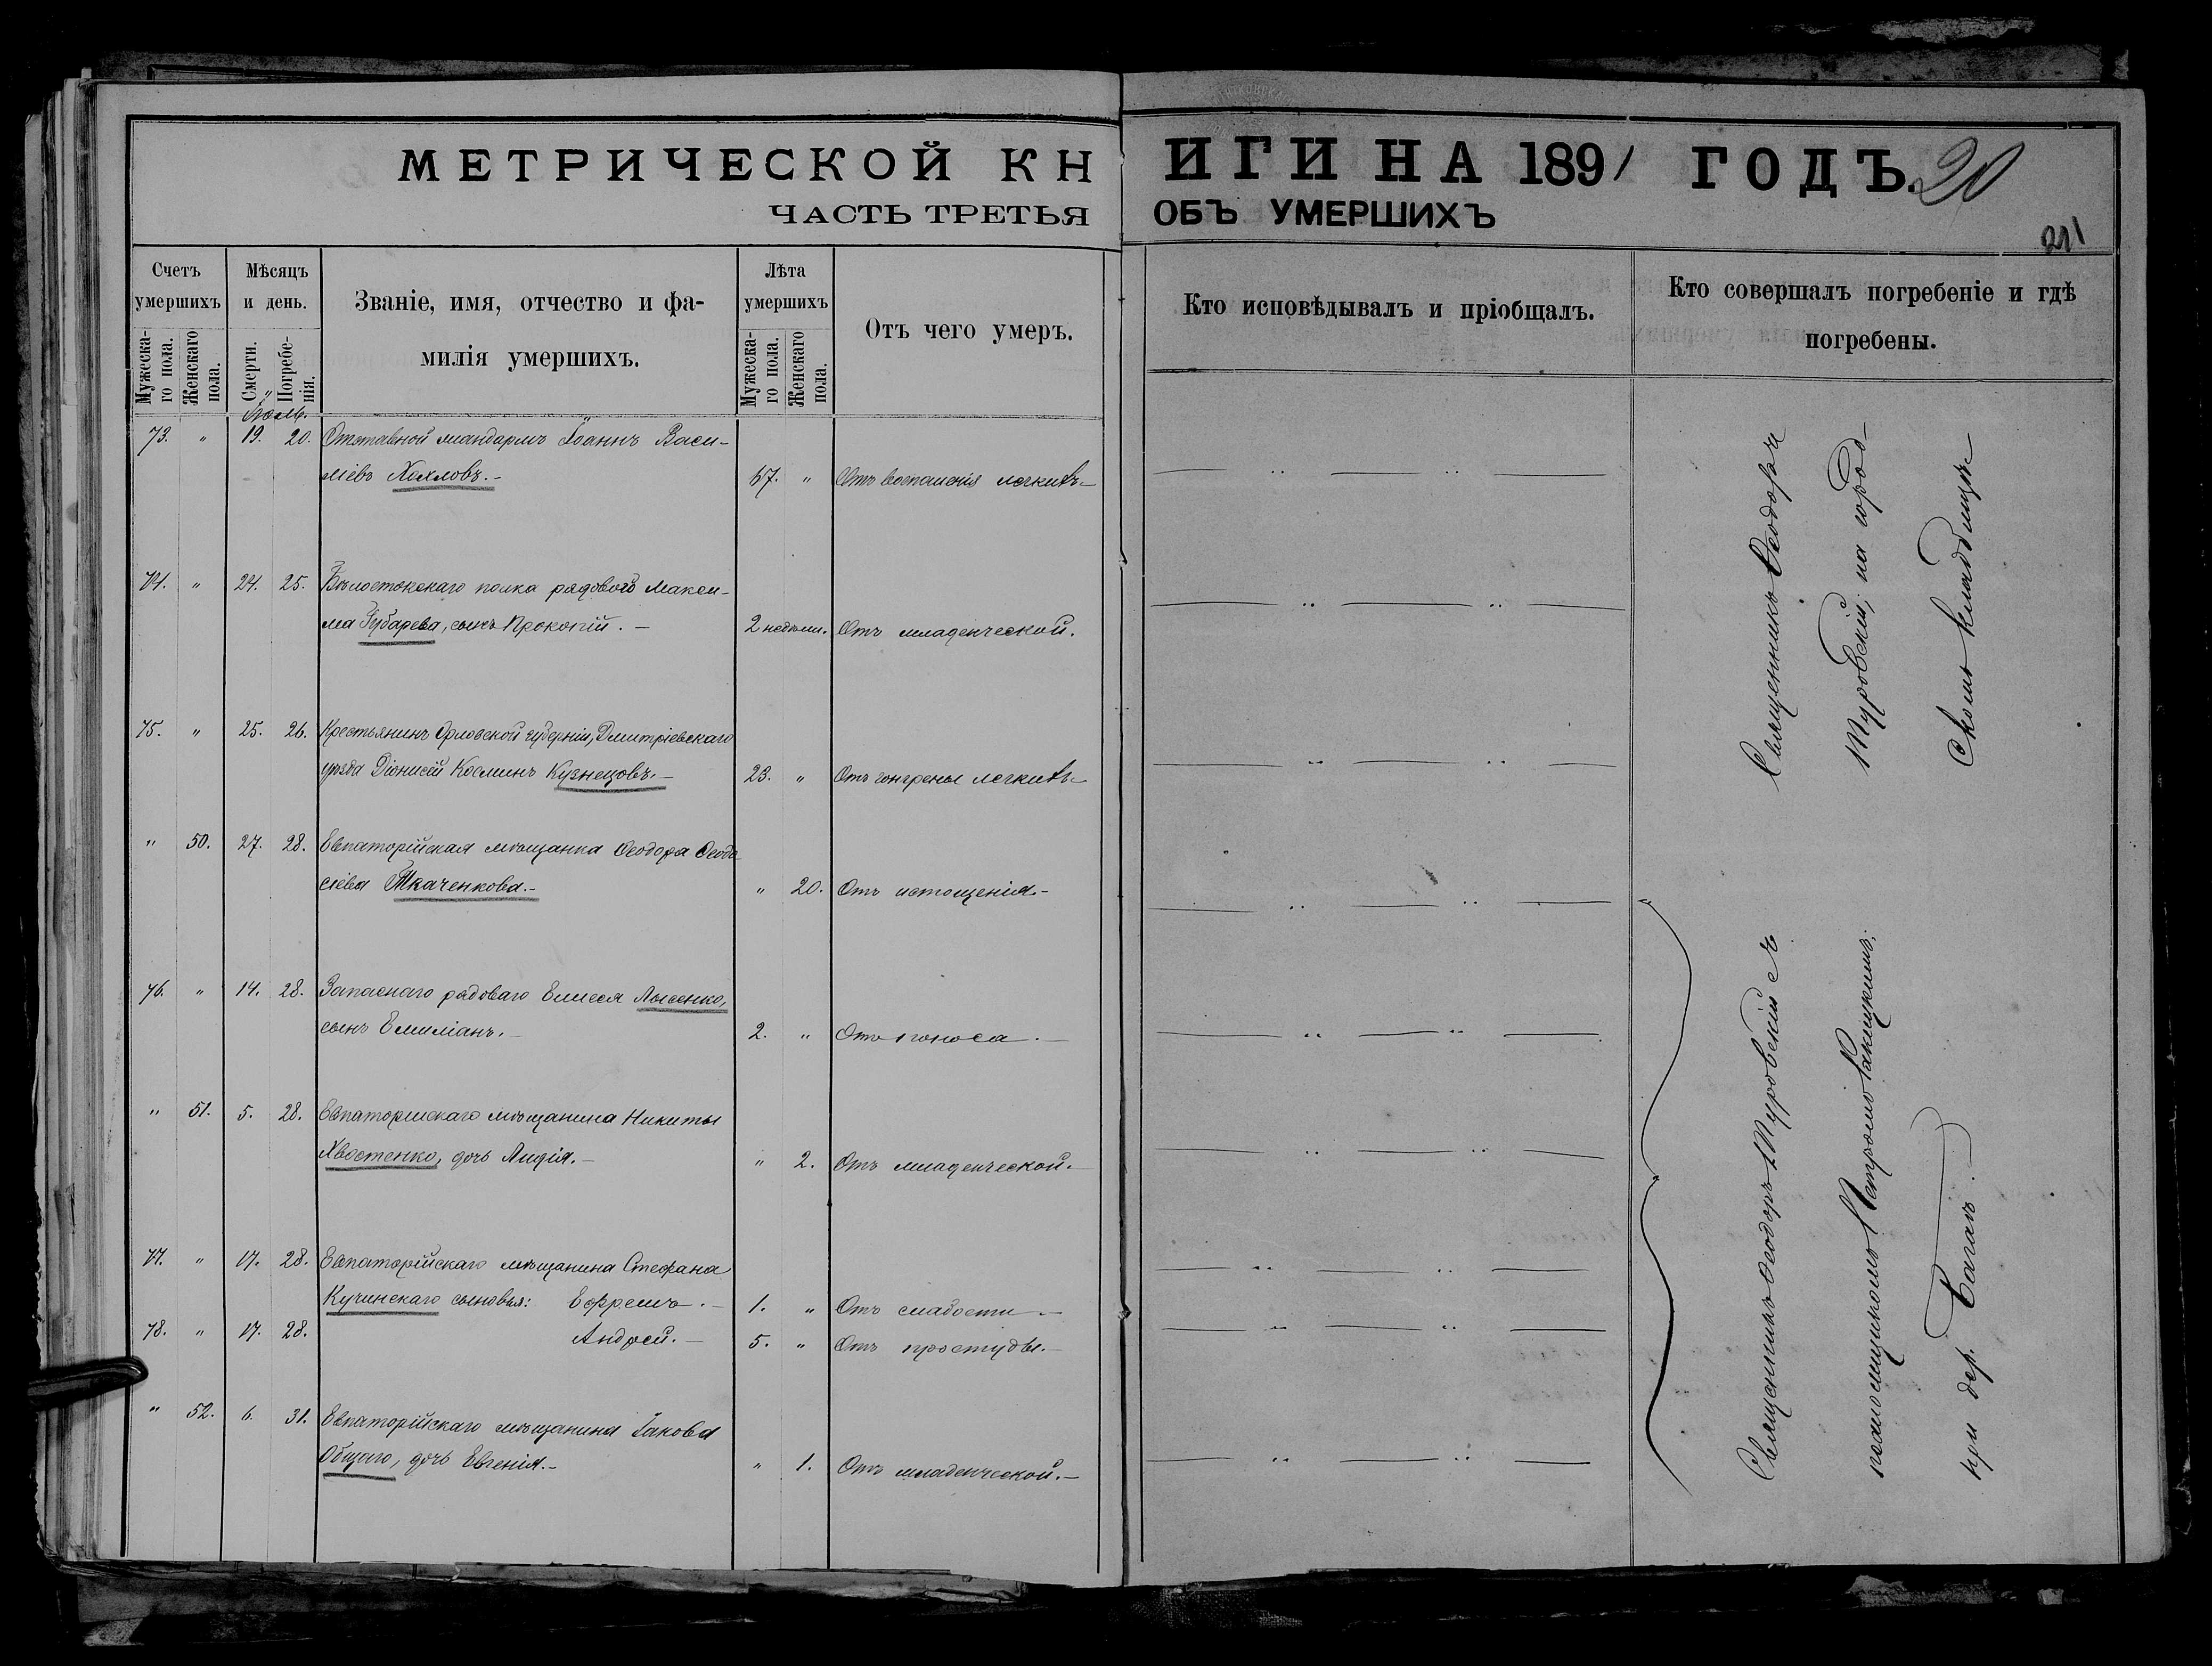 МЕТРИЧЕСКОЙ КН
ЧАСТЬ ТРЕТЬЯ
ИГИ НА 1891 ГОДЪ. 20
ОБЪ УМЕРШИХЪ
211
Счетъ умершихъ
Мужеска-го пола.
Женскаго пола.
Мѣсяцъ и день.
Смерти.
Погребе-нія.
Званіе, имя, отчество и фа-
милія умершихъ.
Лѣта умершихъ
Мужеска-го пола.
Женскаго пола.
Отъ чего умеръ.
Кто исповѣдывалъ и пріобщалъ.
Кто совершалъ погребеніе и гдѣ
погребены.
73. " 19. 20. Отставной жандармъ Іоаннъ Васи-
ліевъ Хохловъ.- 67. " Отъ воспаленія легкихъ-
74. " 24. 25. Бѣлостокскаго полка рядового Макси-
ма Губарева, сынъ Прокопій. - 2 недѣли. Отъ младенческой.
75. " 25. 26. Крестьянинъ Орловской губерніи, Дмитріевскаго
уѣзда Діонисій Косминъ Кузнецовъ.- 23. " Отъ гангрены легкихъ-
" 50. 27. 28. Евпаторійская мѣщанка Ѳеодора Ѳеодо
сіева Ткаченкова.- " 20. Отъ истощенія.-
76. " 14. 28. Запаснаго рядоваго Елисея Лысенко,
сынъ Емиліанъ.- 2. " Отъ поноса.-
" 51. 5. 28. Евпаторійскаго мѣщанина Никиты
Хвостенко, дочь Лидія.- " 2. Отъ младенческой.-
77. " 17. 28. Евпаторійскаго мѣщанина Стефана
Кучинскаго сыновья: Ефремъ.- 1. " Отъ слабости.-
78. " 17. 28. Андрей.- 5. " Отъ простуды.-
" 52. 6. 31. Евпаторійскаго мѣщанина Іакова
Общаго, дочь Евгенія.- " 1. Отъ младенческой.-
Священникъ Ѳеодоръ
Туровскій; на город-
скомъ кладбищѣ-
Священникъ Ѳеодоръ Туровскій съ
псаломщикомъ Петромъ
при дер. Багай.